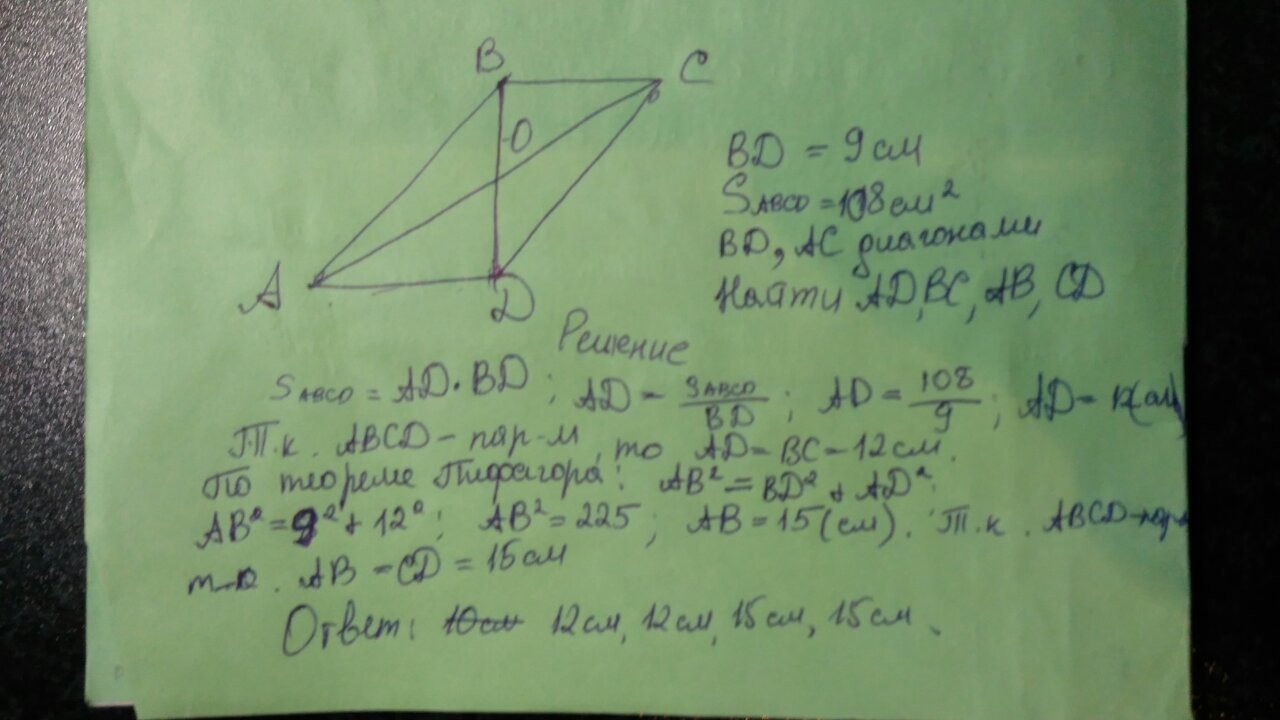 B C
O
A D
BD = 9 см
SABCD = 108 см²
BD, AC диагонали
Найти AD, BC, AB, CD
Решение
SABCD = AD · BD ; AD = SABCD / BD ; AD = 108 / 9 ; AD = 12(см)
Т.к. ABCD – пар-м, то AD = BC = 12 см.
По теореме Пифагора: AB² = BD² + AD².
AB² = 9² + 12² ; AB² = 225 ; AB = 15 (см). Т.к. ABCD – пар-м
то. AB = CD = 15 см
Ответ: 10 см 12 см, 12 см, 15 см, 15 см.